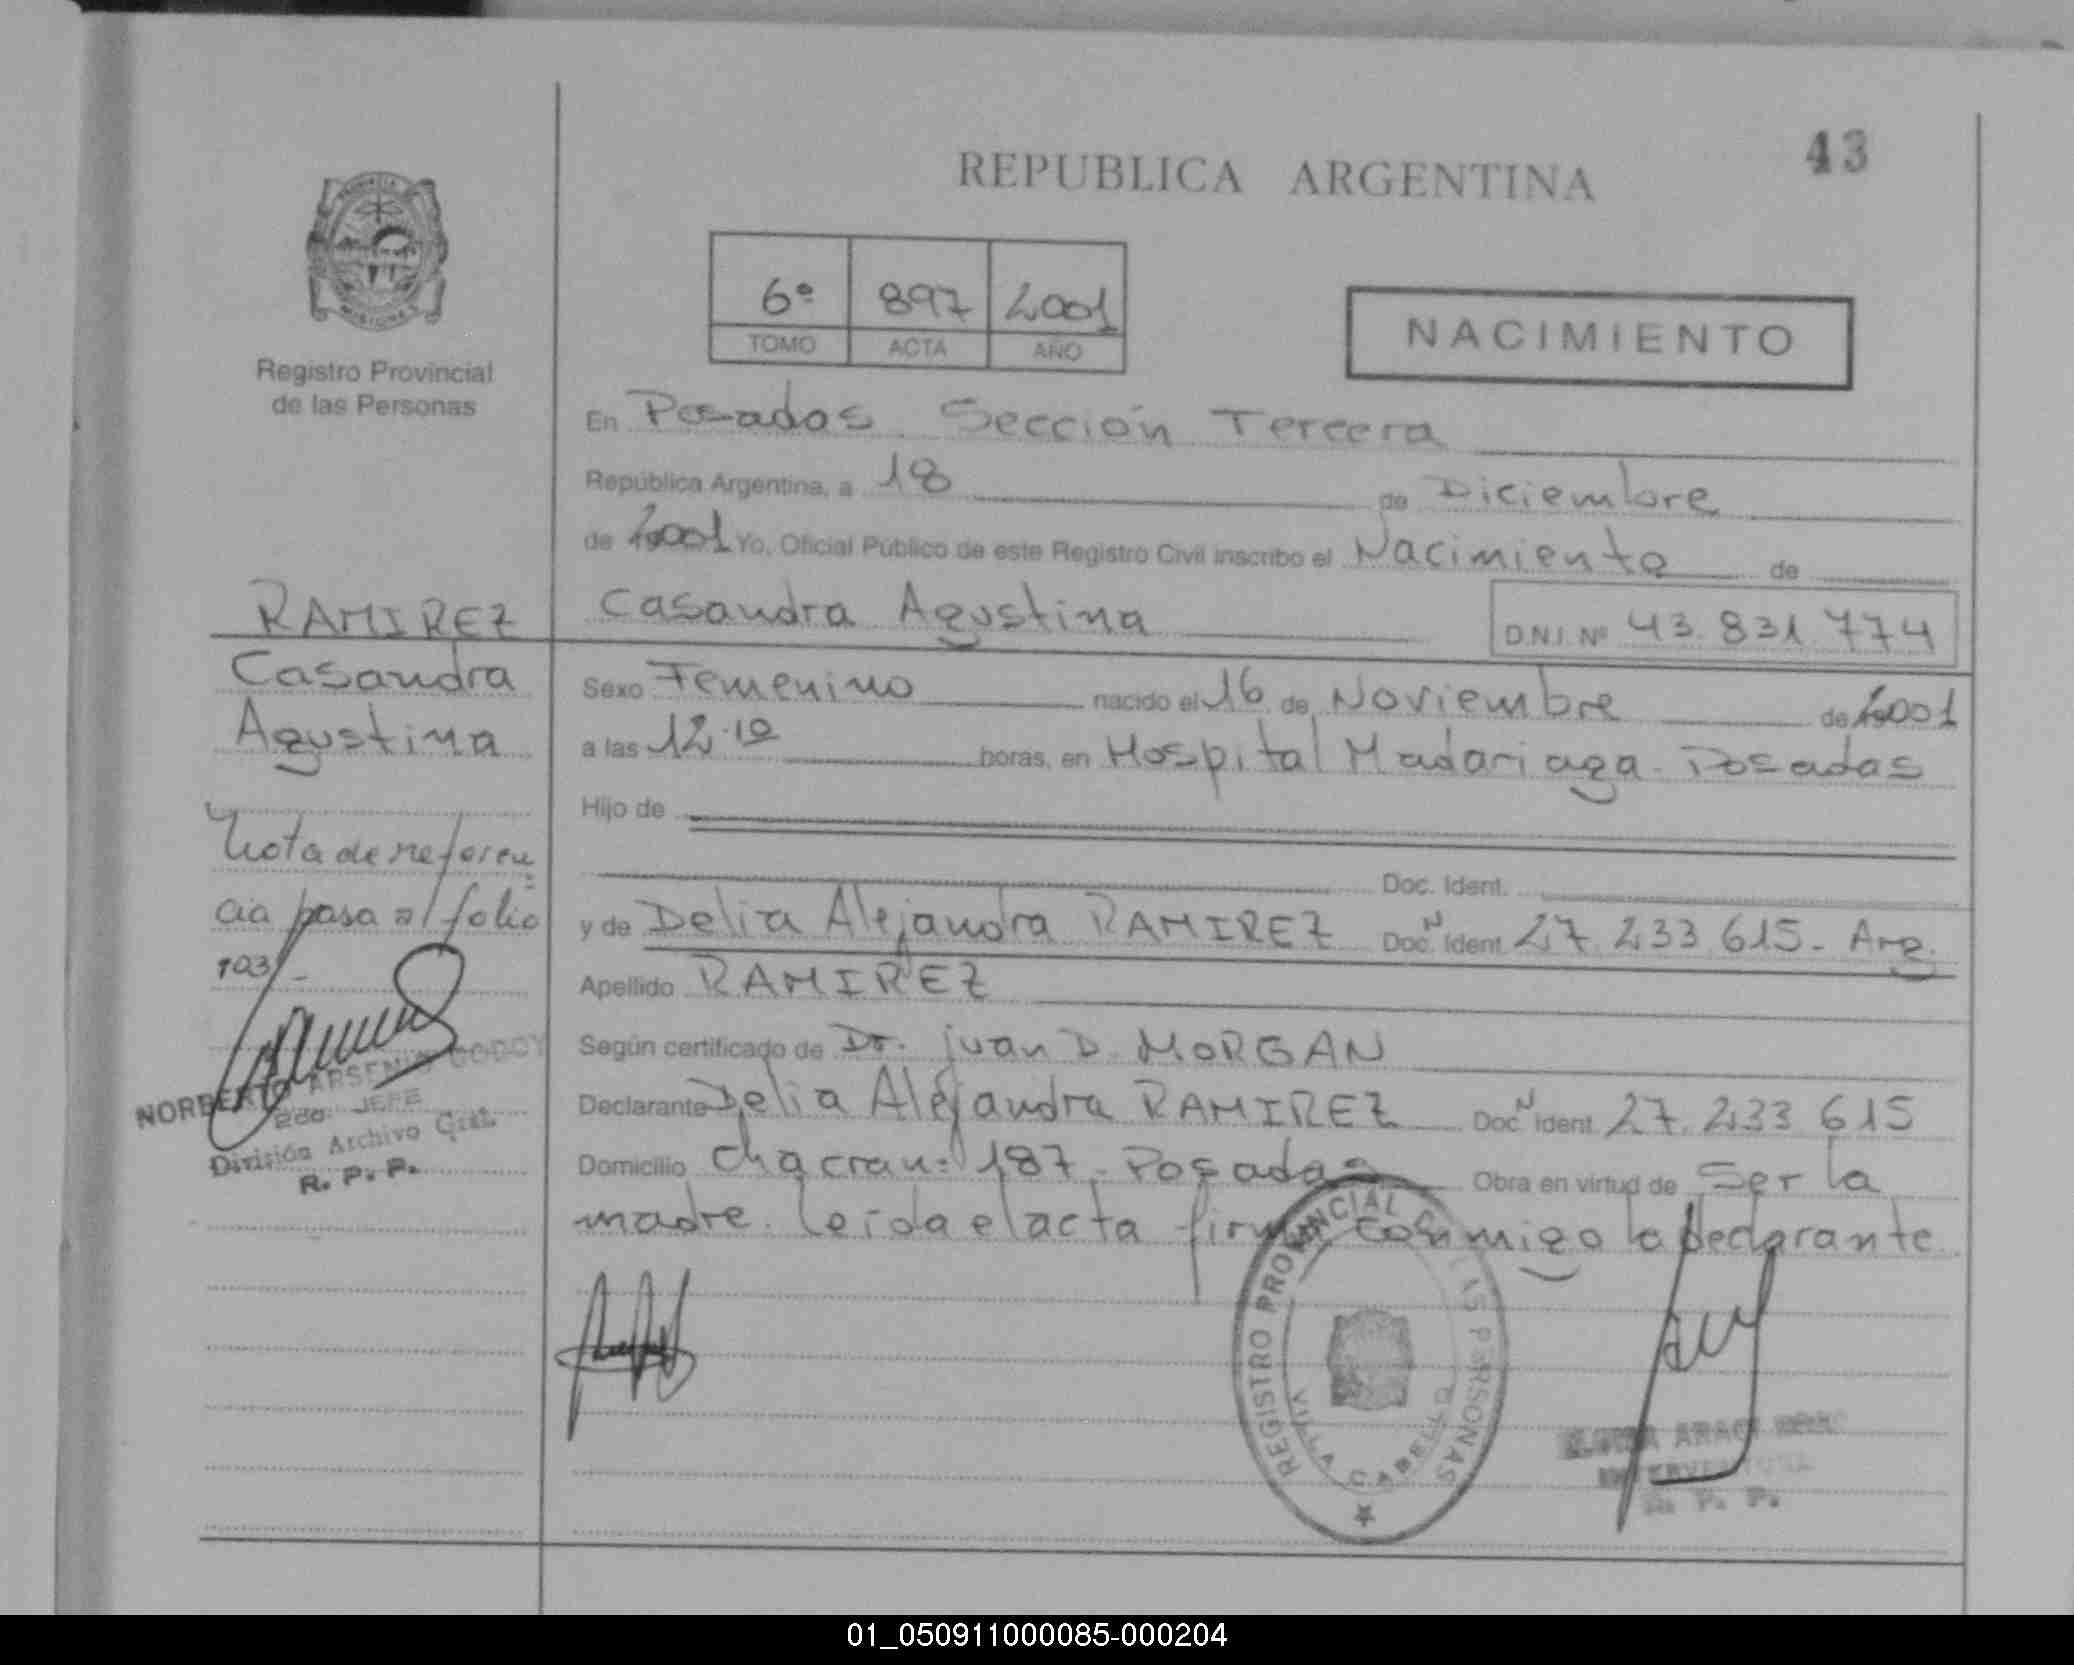 43
REPUBLICA ARGENTINA
MISIONES
6º 897 2001
TOMO ACTA AÑO
NACIMIENTO
Registro Provincial
de las Personas
En Posadas Sección Tercera
República Argentina, a 18 de Diciembre
de 2001 Yo, Oficial Público de este Registro Civil inscribo el Nacimiento de
RAMIREZ Casandra Agustina D.N.I. Nº 43.831.774
Casandra
Agustina
Sexo Femenino nacido el 16 de Noviembre de 2001
a las 12.10 horas, en Hospital Madariaga - Posadas
Hijo de
Doc. Ident.
y de Delia Alejandra RAMIREZ Doc. Ident. 27.233.615 - Arg.
Apellido RAMIREZ
Según certificado de Dr. Juan D. MORGAN
Declarante Delia Alejandra RAMIREZ Doc. Ident. 27.233.615
Domicilio Chacra n: 187 - Posadas Obra en virtud de Ser la
madre. leída el acta firma conmigo la declarante
Nota de referen
cia pasa al folio
103/-
NORBERTO ARSENIO GODOY
2do. JEFE
División Archivo Gral.
R. P. P.
REGISTRO PROVINCIAL DE LAS PERSONAS
VILLA CABELLO
INTERVENTORA
R. P. P.
01_050911000085-000204